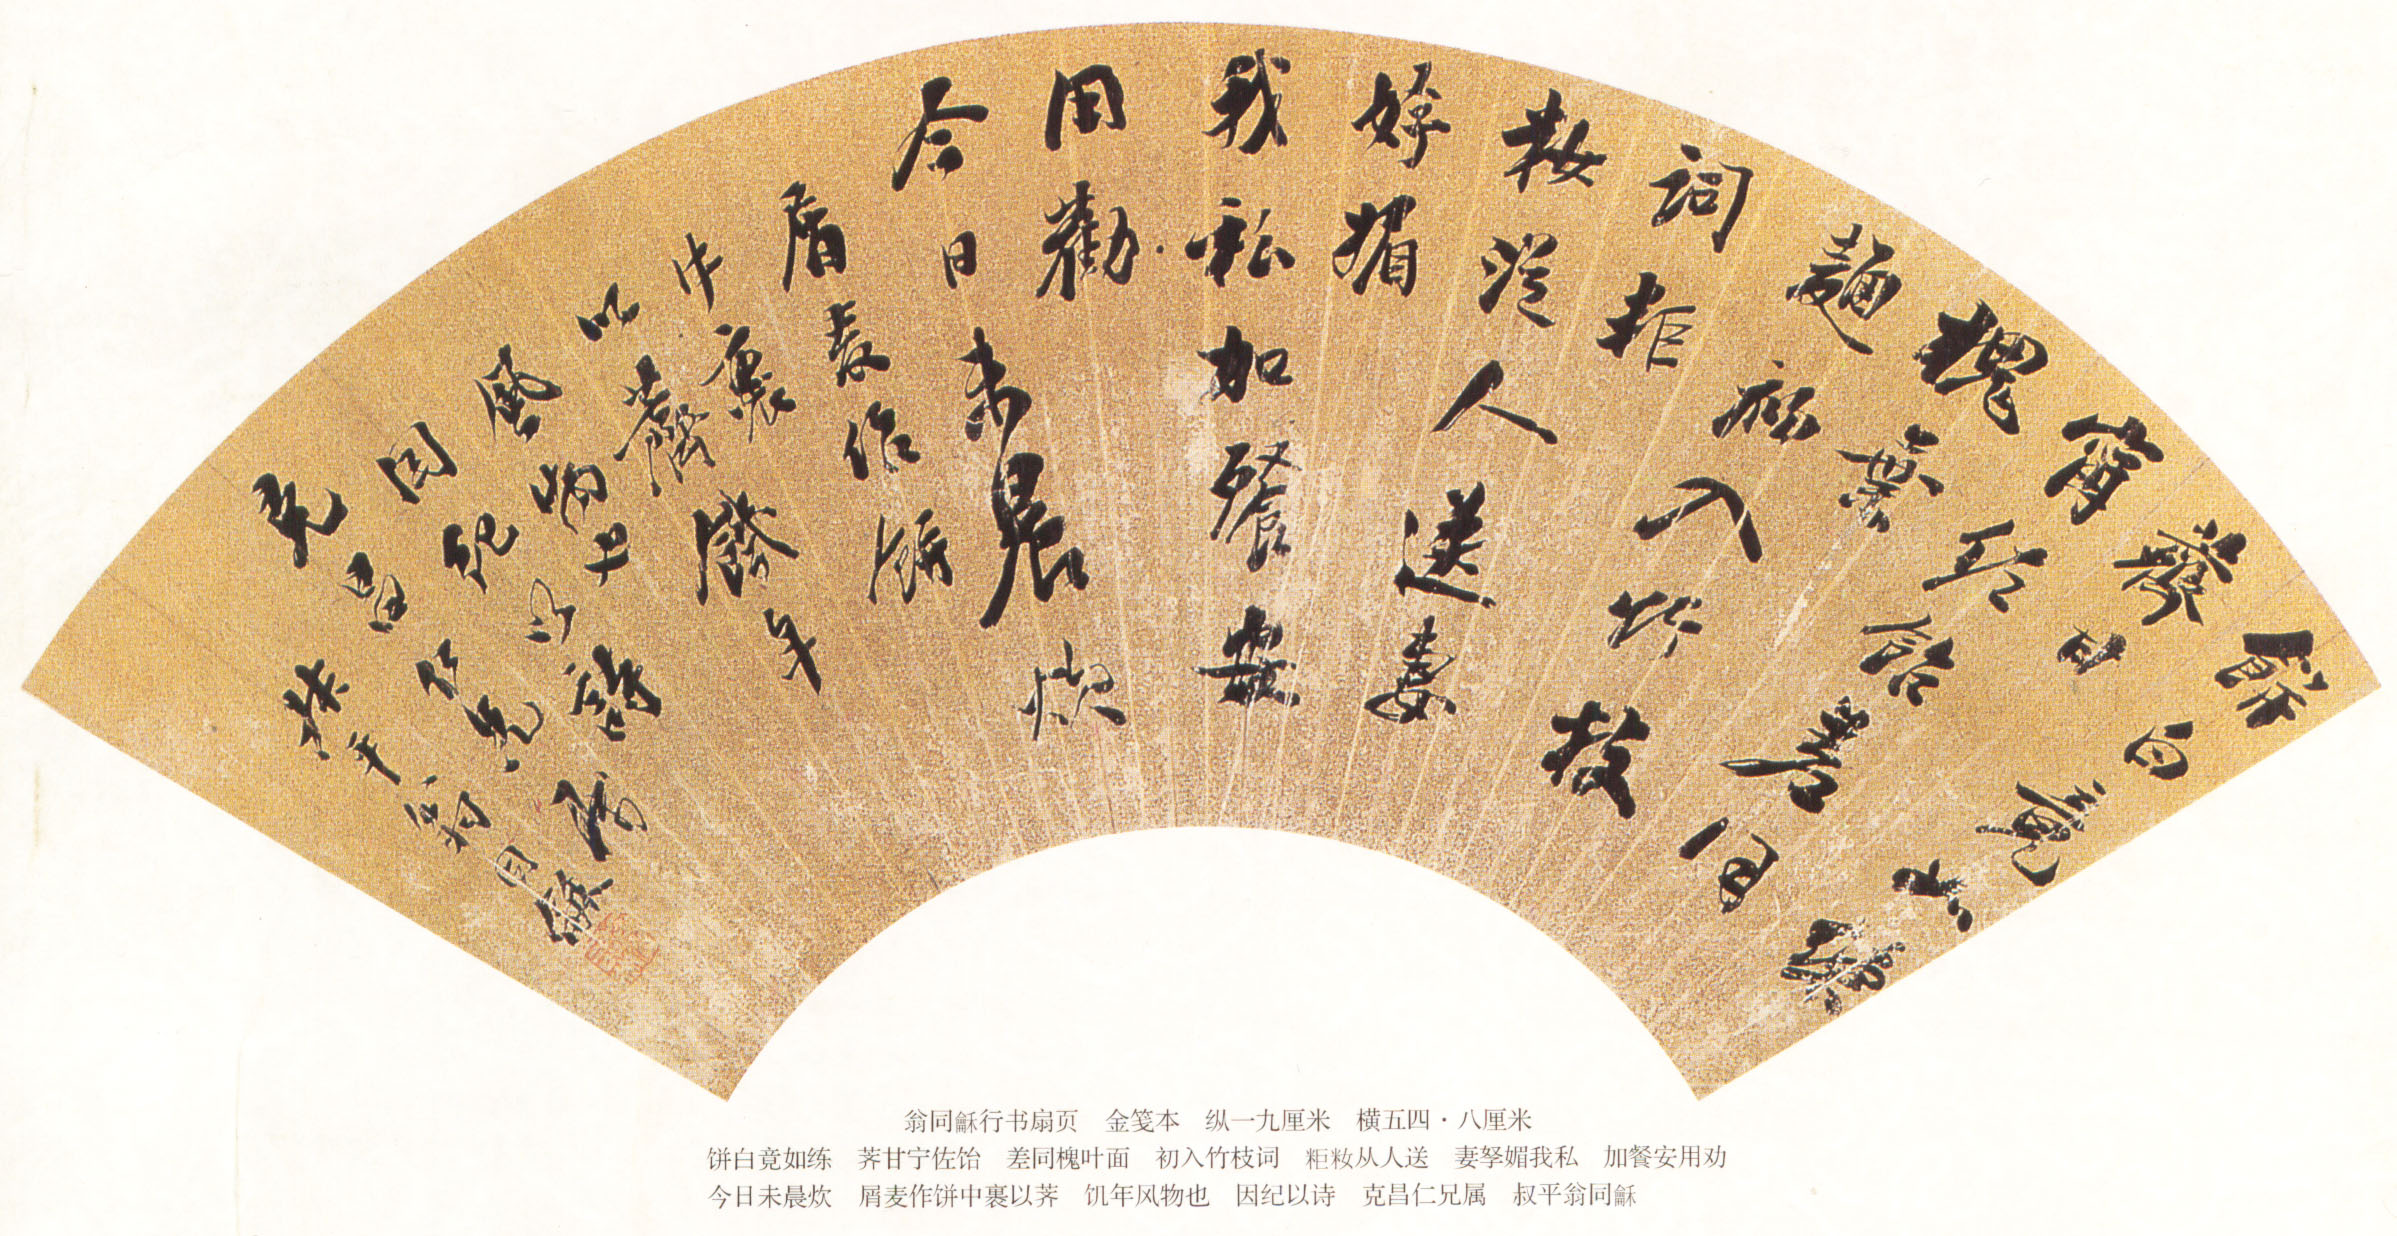 餅白竟如練
薺甘
甯佐飴差同
槐葉
麵初入竹枝
詞粔
籹從人送妻
孥媚
我私加餐安
用勸
今日未晨炊
屑麥作餅
中裹
以薺饑年
風物也
因紀以詩
克昌仁兄屬
叔平翁同龢
翁同龢行书扇页　金笺本　纵一九厘米　横五四·八厘米
饼白竟如练　荠甘宁佐饴　差同槐叶面　初入竹枝词　粔籹从人送　妻孥媚我私　加餐安用劝
今日未晨炊　屑麦作饼中裹以荠　饥年风物也　因纪以诗　克昌仁兄属　叔平翁同龢